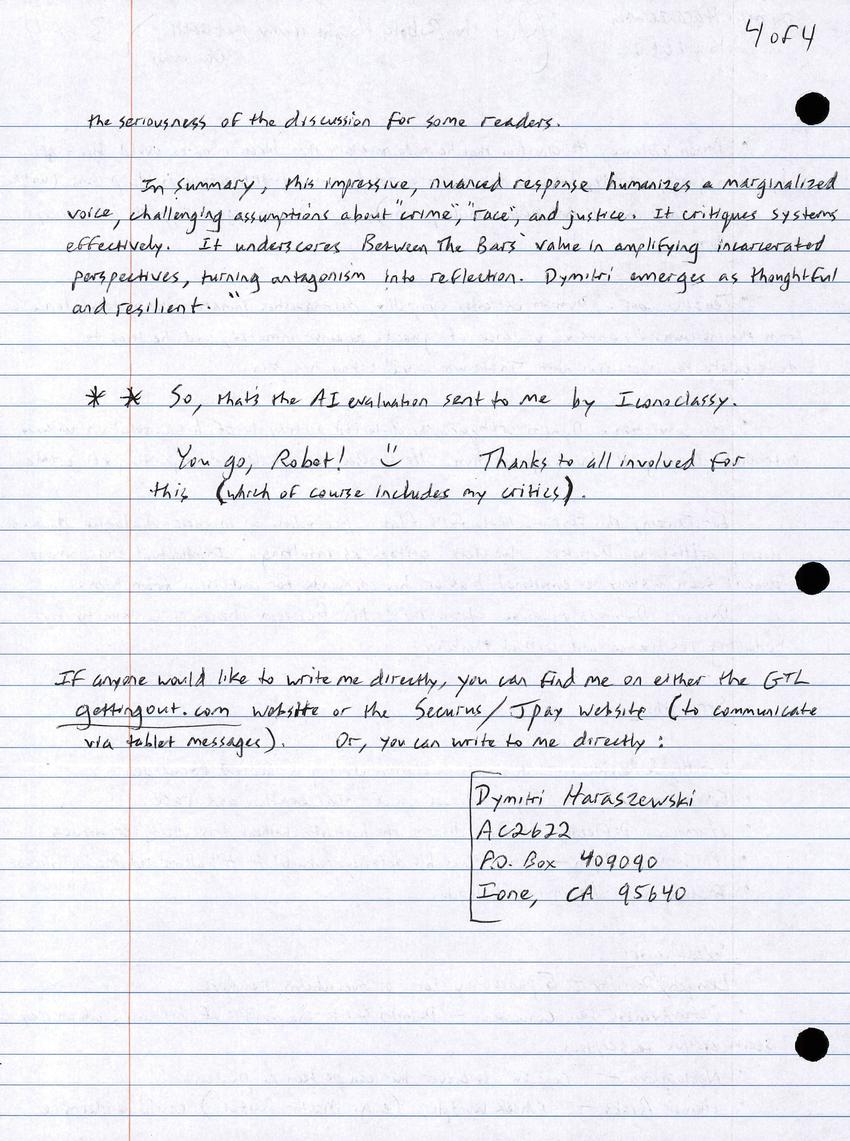 4 of 4
the seriousness of the discussion for some readers.
In summary, this impressive, nuanced response humanizes a marginalized
voice, challenging assumptions about "crime", "race", and justice. It critiques systems
effectively. It underscores Between The Bars' value in amplifying incarcerated
perspectives, turning antagonism into reflection. Dymitri emerges as thoughtful
and resilient."
* * So, that's the AI evaluation sent to me by Iconoclassy.
You go, Robot! Thanks to all involved for
this (which of course includes my critics).
If anyone would like to write me directly, you can find me on either the GTL
gettingout.com website or the Securus/JPay website (to communicate
via tablet messages). Or, you can write to me directly:
Dymitri Haraszewski
AC2622
P.O. Box 409090
Ione, CA 95640